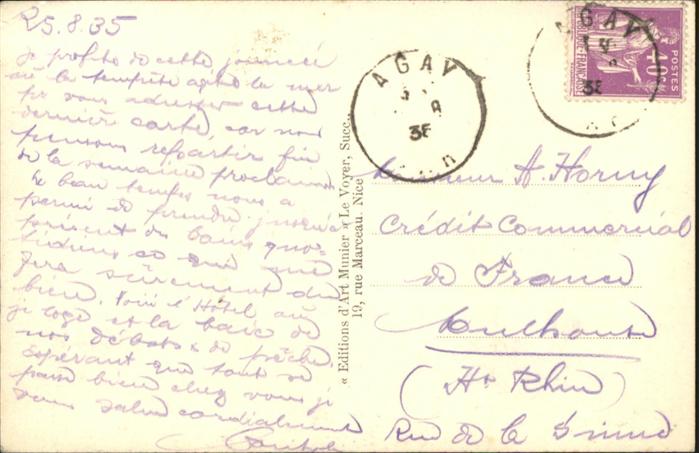 25.8.35
je profite de cette journée
où la tempête agite la mer
pr vous adresser cette
dernière carte, car nous
pensons repartir fin
de la semaine prochaine
Le beau temps nous a
permis de prendre jusqu'à
présent des bains quo-
tidiens ce qui me
fera sûrement du
bien. Voici l'Hôtel où
je loge et la baie de
nos débats de pêche.
Espérant que tout se
passe bien chez vous je
vous salue cordialement
« Editions d'Art Munier » Le Voyer, Succ.,
19, rue Marceau. Nice
AGAY
35
AGAY
35
POSTES
40c
Monsieur A Horny
Crédit Commercial
de France
Mulhouse
(Ht Rhin)
Rue de la